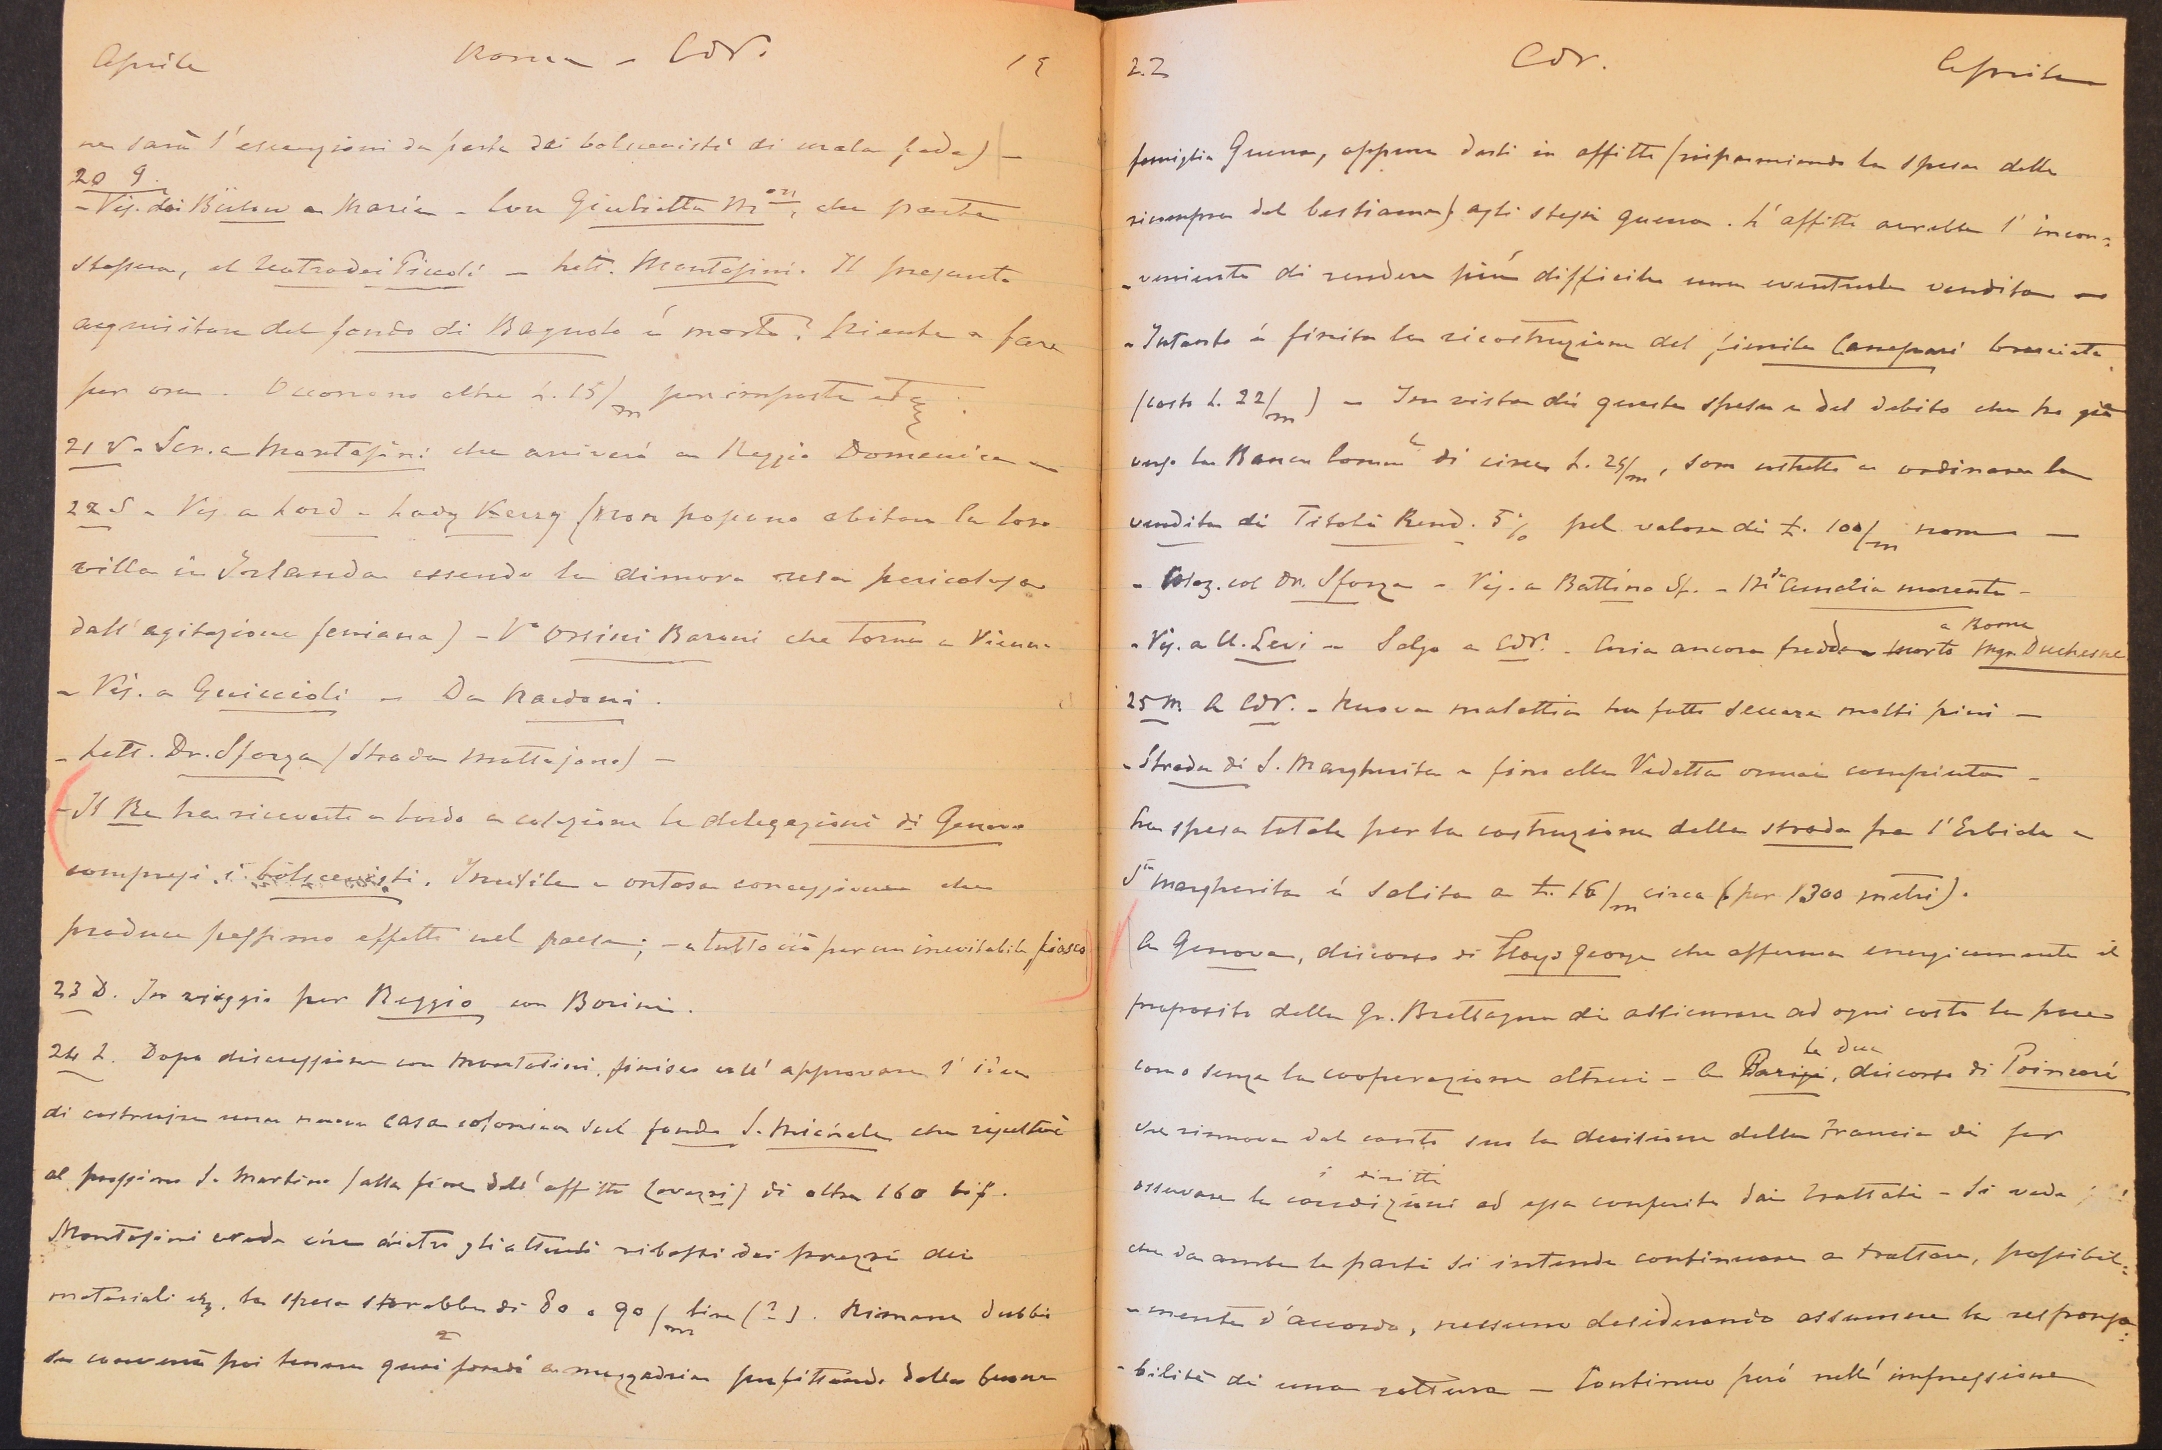 Aprile Roma - CdV. 19
ne sarà l'escursioni da parte dei bolscevisti di mala fede) -
20 G.
- Vis. dai Bülow a Maria - Con Giulietta M. che parte
stasera, al Teatro dei Piccoli - Lett. Montasini. Il presunto
acquisitore del fondo di Bagnolo è morto? Niente a fare
per ora. Occorrono altre L. 15/m per imposte ed
21 V - Scr. a Montasini che arriverò a Reggio Domenica -
22 S - Vis. a Lord e Lady Kerry (Non possono abitare la loro
villa in Irlanda essendo la dimora resa pericolosa
dall'agitazione feniana) - Va Orsini Baroni che torna a Vienna
- Vis. a Guiccioli - Da Nardoni.
- Lett. Dr. Sforza (Strada Mattajone) -
- Il Re ha ricevuto a bordo a colazione le delegazioni di Genova
compresi i bolscevisti. Inutile e ontosa concessione che
produce pessimo effetto nel paese; - e tutto ciò per un inevitabile fiasco
23 D. In viaggio per Reggio con Borini.
24 L. Dopo discussione con Montasini, finisco coll'approvare l'idea
di costruire una nuova casa colonica sul fondo S. Michele che risulterà
al prossimo S. Martino (alla fine dell'affitto Covezzi) di oltre 160 bif.
Montasini crede che dietro gli attuali ribassi dei prezzi dei
materiali ecc. la spesa sarebbe di 80 a 90/m lire (?). Rimane dubbio
se converrà poi tenere quei fondi a mezzadria profittando della buona
22 CdV. Aprile
famiglia Guerra, oppure darli in affitto (risparmiando la spesa della
ricompra del bestiame) agli stessi Guerra. L'affitto avrebbe l'incon=
-veniente di rendere più difficile una eventuale vendita -
- Intanto è finita la ricostruzione del fienile Canepari bruciato
(costo L. 22/m) - In vista di queste spese e del debito che ho già
verso la Banca Comm.le di circa L. 25/m, sono costretto a ordinare la
vendita di Titoli Rend. 5% pel valore di L. 100/m nom -
- Colaz. col Dr. Sforza - Vis. a Battino Sf. - Amalia morente -
a Roma
- Vis. a U. Levi - Salgo a CdV. - Aria ancora fredda - Morto Mgr. Duchesne
25 M. A CdV. - Nuova malattia ha fatto seccare molti pini -
- Strada di S. Margherita e fino alla Vedetta ormai compiuta -
La spesa totale per la costruzione della strada fra l'Erbida e
Sta Margherita è salita a L. 16/m circa (per 1300 metri).
A Genova, discorso di Lloyd George che afferma energicamente il
proposito della Gr. Brettagna di assicurare ad ogni costo la pace
con o senza la cooperazione altrui - A Parigi, discorso di Poincaré
Bar le Duc
che rinnova dal canto suo la decisione della Francia di far
i diritti
osservare le condizioni ad essa conferite dai trattati - Si vede
che da ambe le parti si intende continuare a trattare, possibil=
-mente d'accordo, nessuno desiderando assumere la responsa=
-bilità di una rottura - Continuo però nell'impressione